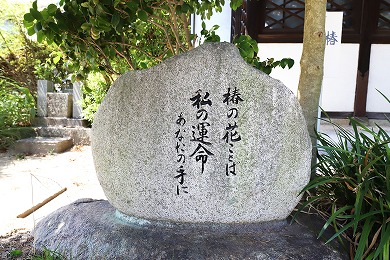 椿の花ことは
私の運命
あなたの手に
椿